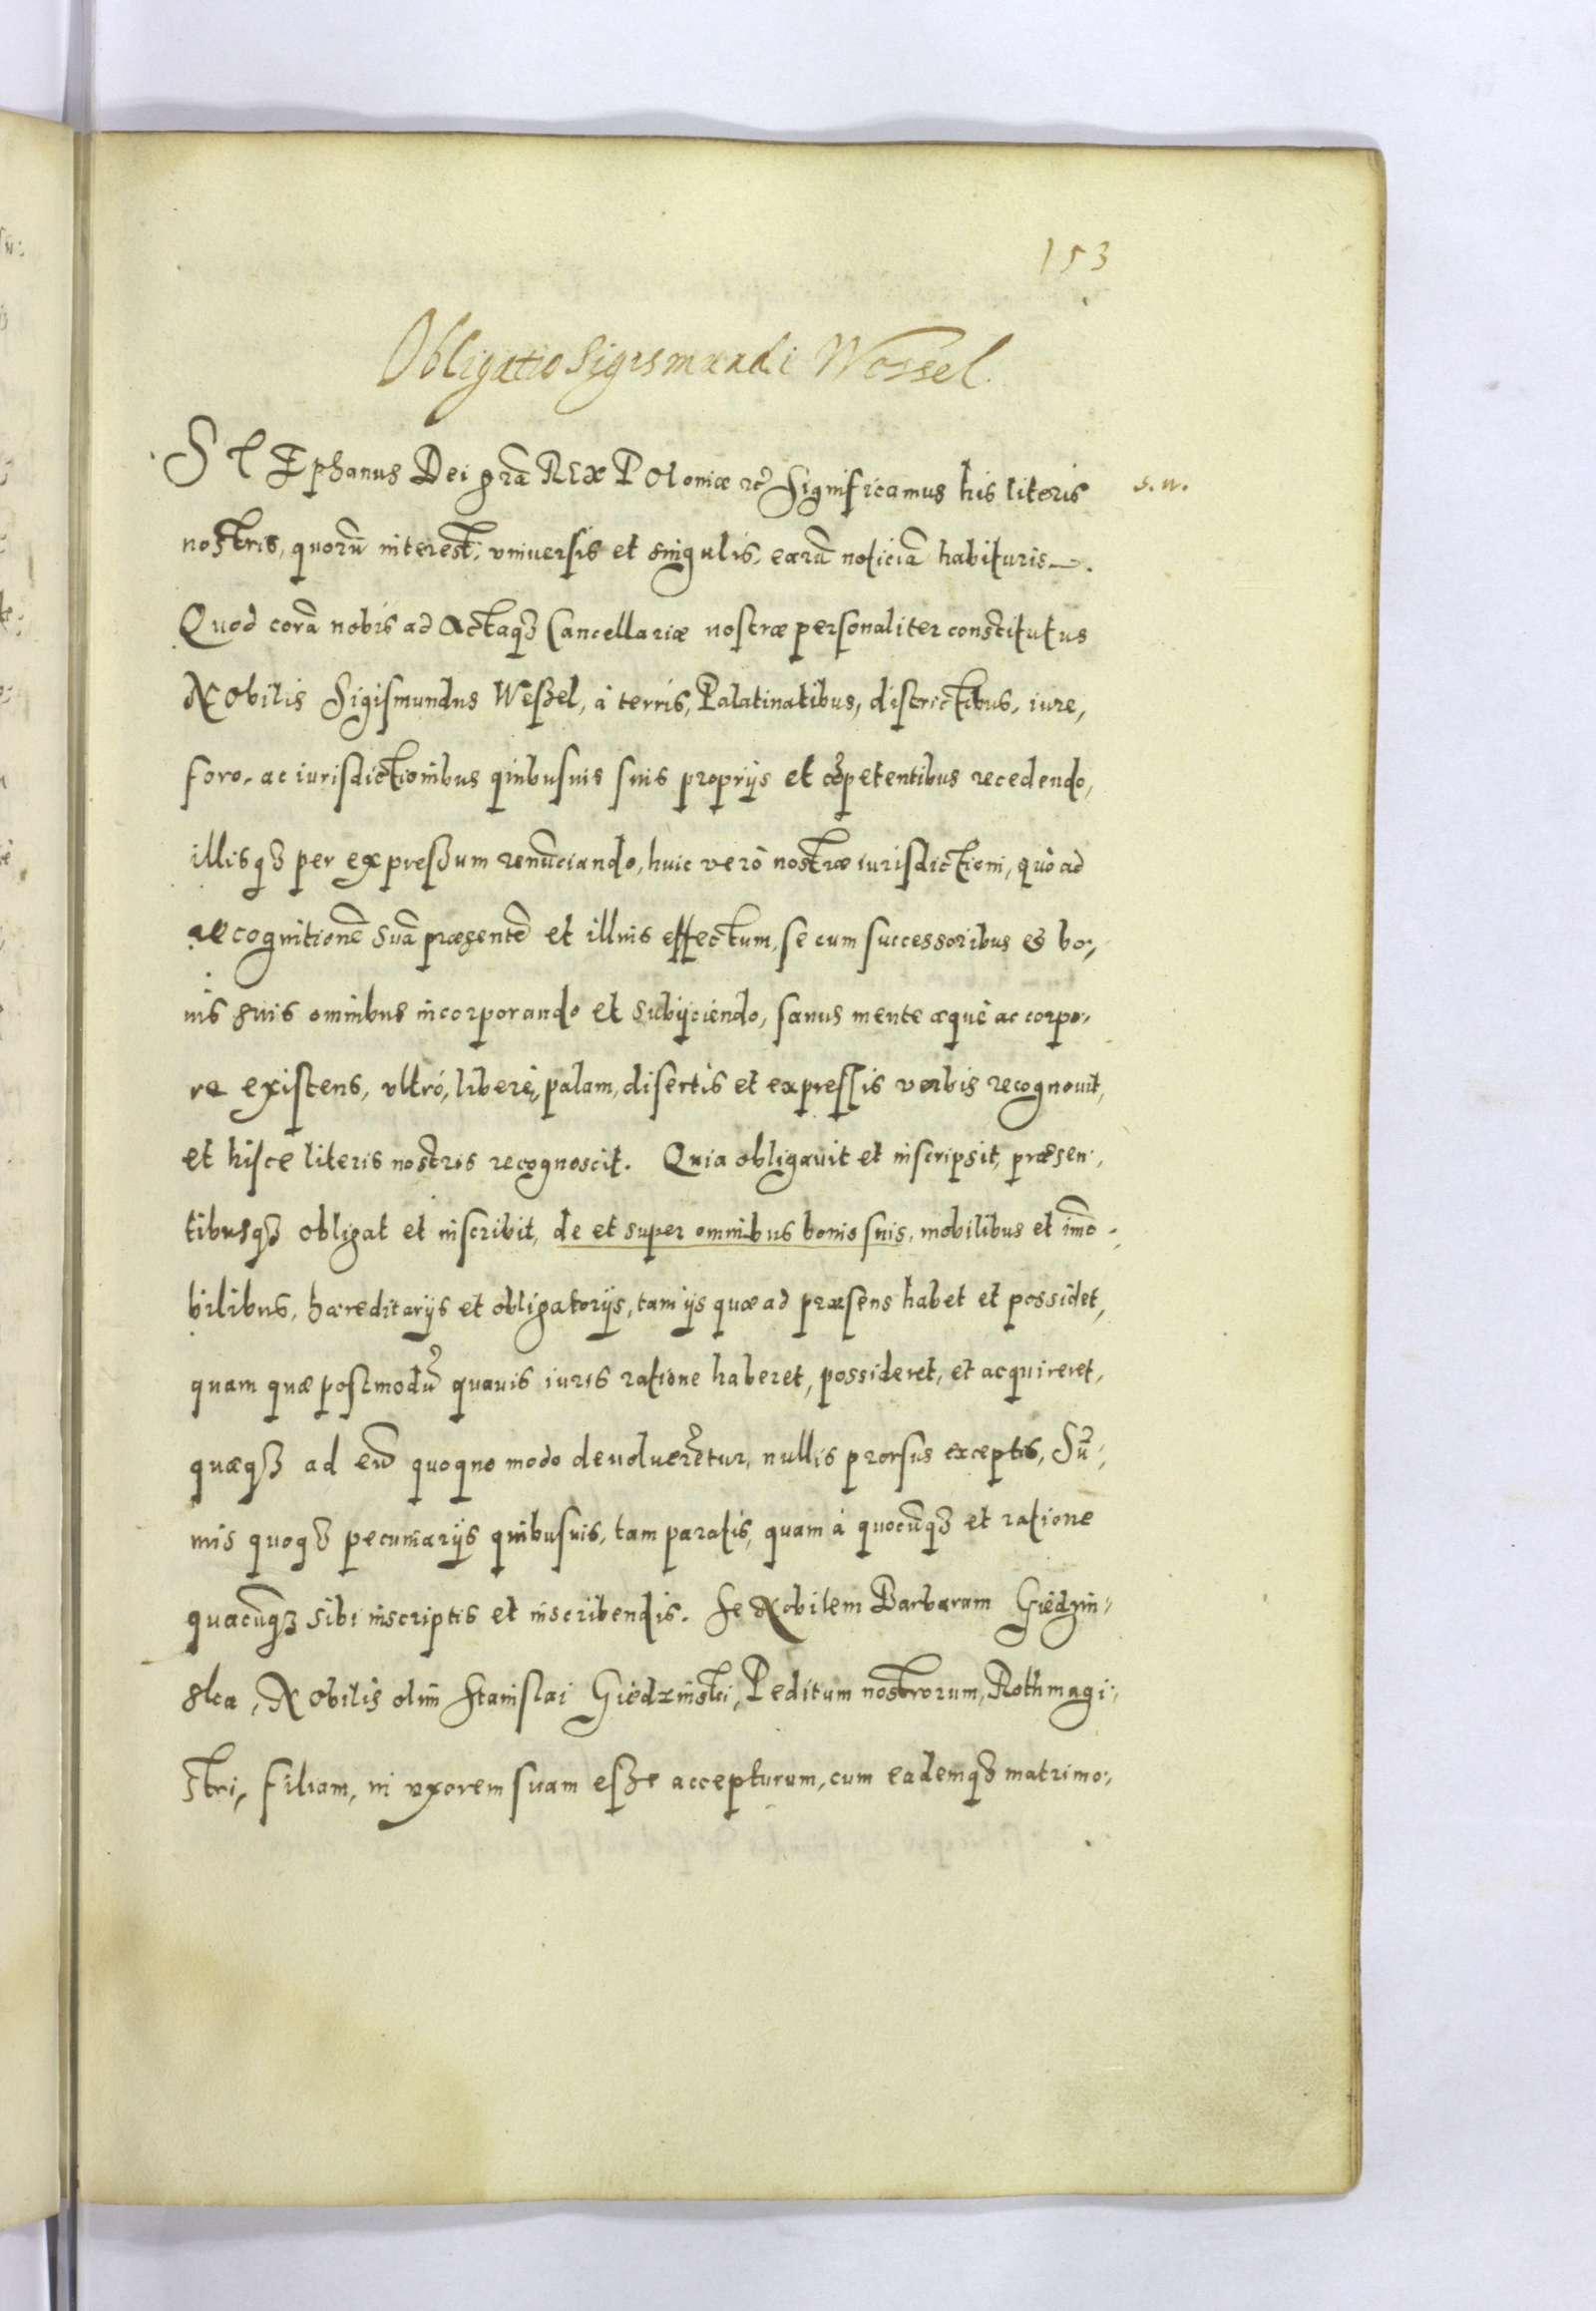 153
Obligatio Sigismundi Wessel.
STEphanus Dei grã REX POloniæ ꝛč Significamus his literis s. n.
nostris, quorũ interest, vniuersis et singulis, earũ noticiã habituris.
Quod corã nobis ad Actaqʒ Cancellariæ nostræ personaliter constitutus
NObilis Sigismundus Weßel, à terris, Palatinatibus, districtibus, iure,
foro, ac iurisdictionibus quibusuis suis proprijs et cõpetentibus recedendo,
illisqʒ per expreßum renũciando, huic verò nostræ iurisdictioni, quò ad
recognitionẽ suã præsentẽ et illius effectum, se cum successoribus & bo-
nis suis omnibus incorporando et subijciendo, sanus mente æquè ac corpo-
re existens, vltrò, liberè, palam, disertis et expressis verbis recognouit,
et hisce literis nostris recognoscit. Quia obligauit et inscripsit, præsen-
tibusqʒ obligat et inscribit, de et super omnibus bonis suis, mobilibus et im̃o-
bilibus, hæreditarijs et obligatorijs, tam ijs quæ ad præsens habet et possidet,
quam quæ postmodũ quauis iuris ratione haberet, possideret, et acquireret,
quæqʒ ad eũ quoquo modo deuoluerẽtur, nullis prorsus exceptis, Sũ-
mis quoqʒ pecuniarijs quibusuis, tam paratis, quam à quocũqʒ et ratione
quacũqʒ sibi inscriptis et inscribendis. Se NObilem Barbaram Giedzin-
ska, NObilis olim Stanislai Giedzinski, Peditum nostrorum, Rothmagi-
stri, filiam, in vxorem suam eße accepturum, cum eademqʒ matrimo-